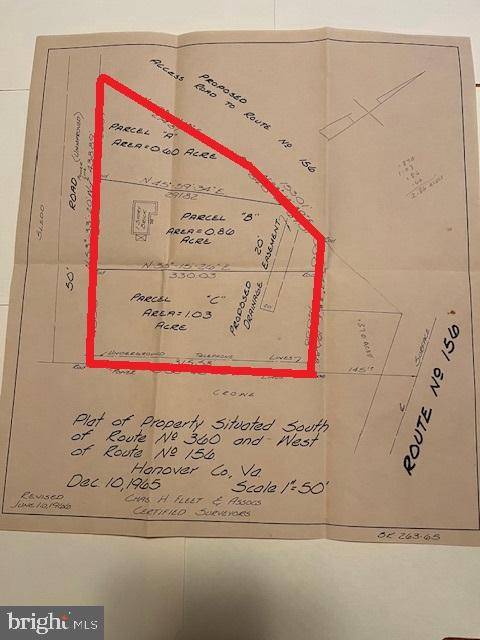 ACCESS PROPOSED
ROAD TO ROUTE No 156
PARCEL "A"
AREA=0.60 ACRE
ROAD
(UNIMPROVED)
SLEDD
50'
N 45°59'34" E
291.82
133.01'
PARCEL "B"
AREA=0.86
ACRE
20'
EASEMENT
PROPOSED
DRAINAGE
N 38°-15'-26" E
330.03
Rod
PARCEL "C"
AREA=1.03
ACRE
20'
UNDERGROUND TELEPHONE LINES
Rod
POWER
315.58
LINES
145'±
CROWE
SURFACE
ROUTE No 156
Plat of Property Situated South
of Route No 360 and West
of Route No 156
Hanover Co, Va.
Dec 10, 1965 Scale 1"=50'
CHAS H FLEET & ASSOCS
CERTIFIED SURVEYORS
REVISED
JUNE 10, 1966
BK 263-65
bright MLS